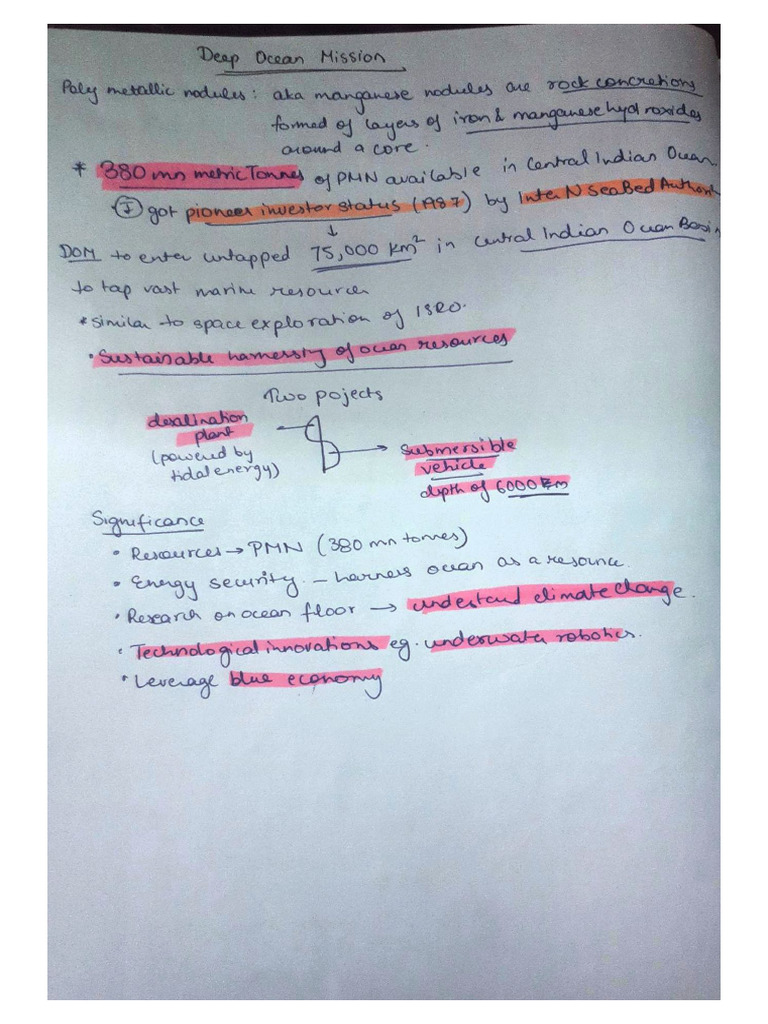 Deep Ocean Mission
Poly metallic nodules: aka manganese nodules are rock concretions
formed of layers of iron & manganese hydroxides
around a core.
* 380 mn metric Tonnes of PMN available in Central Indian Ocean
I got pioneer investor status (1987) by Inter N SeaBed Authority
↓
DOM to enter untapped 75,000 km² in Central Indian Ocean Basin
to tap vast marine resources
* similar to space exploration of ISRO.
• Sustainable harnessing of ocean resources
Two pojects
desalination
plant
(powered by
tidal energy)
submersible
vehicle
depth of 6000 m
Significance
• Resources → PMN (380 mn tonnes)
• Energy security – harness ocean as a resource.
• Research on ocean floor → understand climate change.
• Technological innovations eg. underwater robotics.
• Leverage blue economy